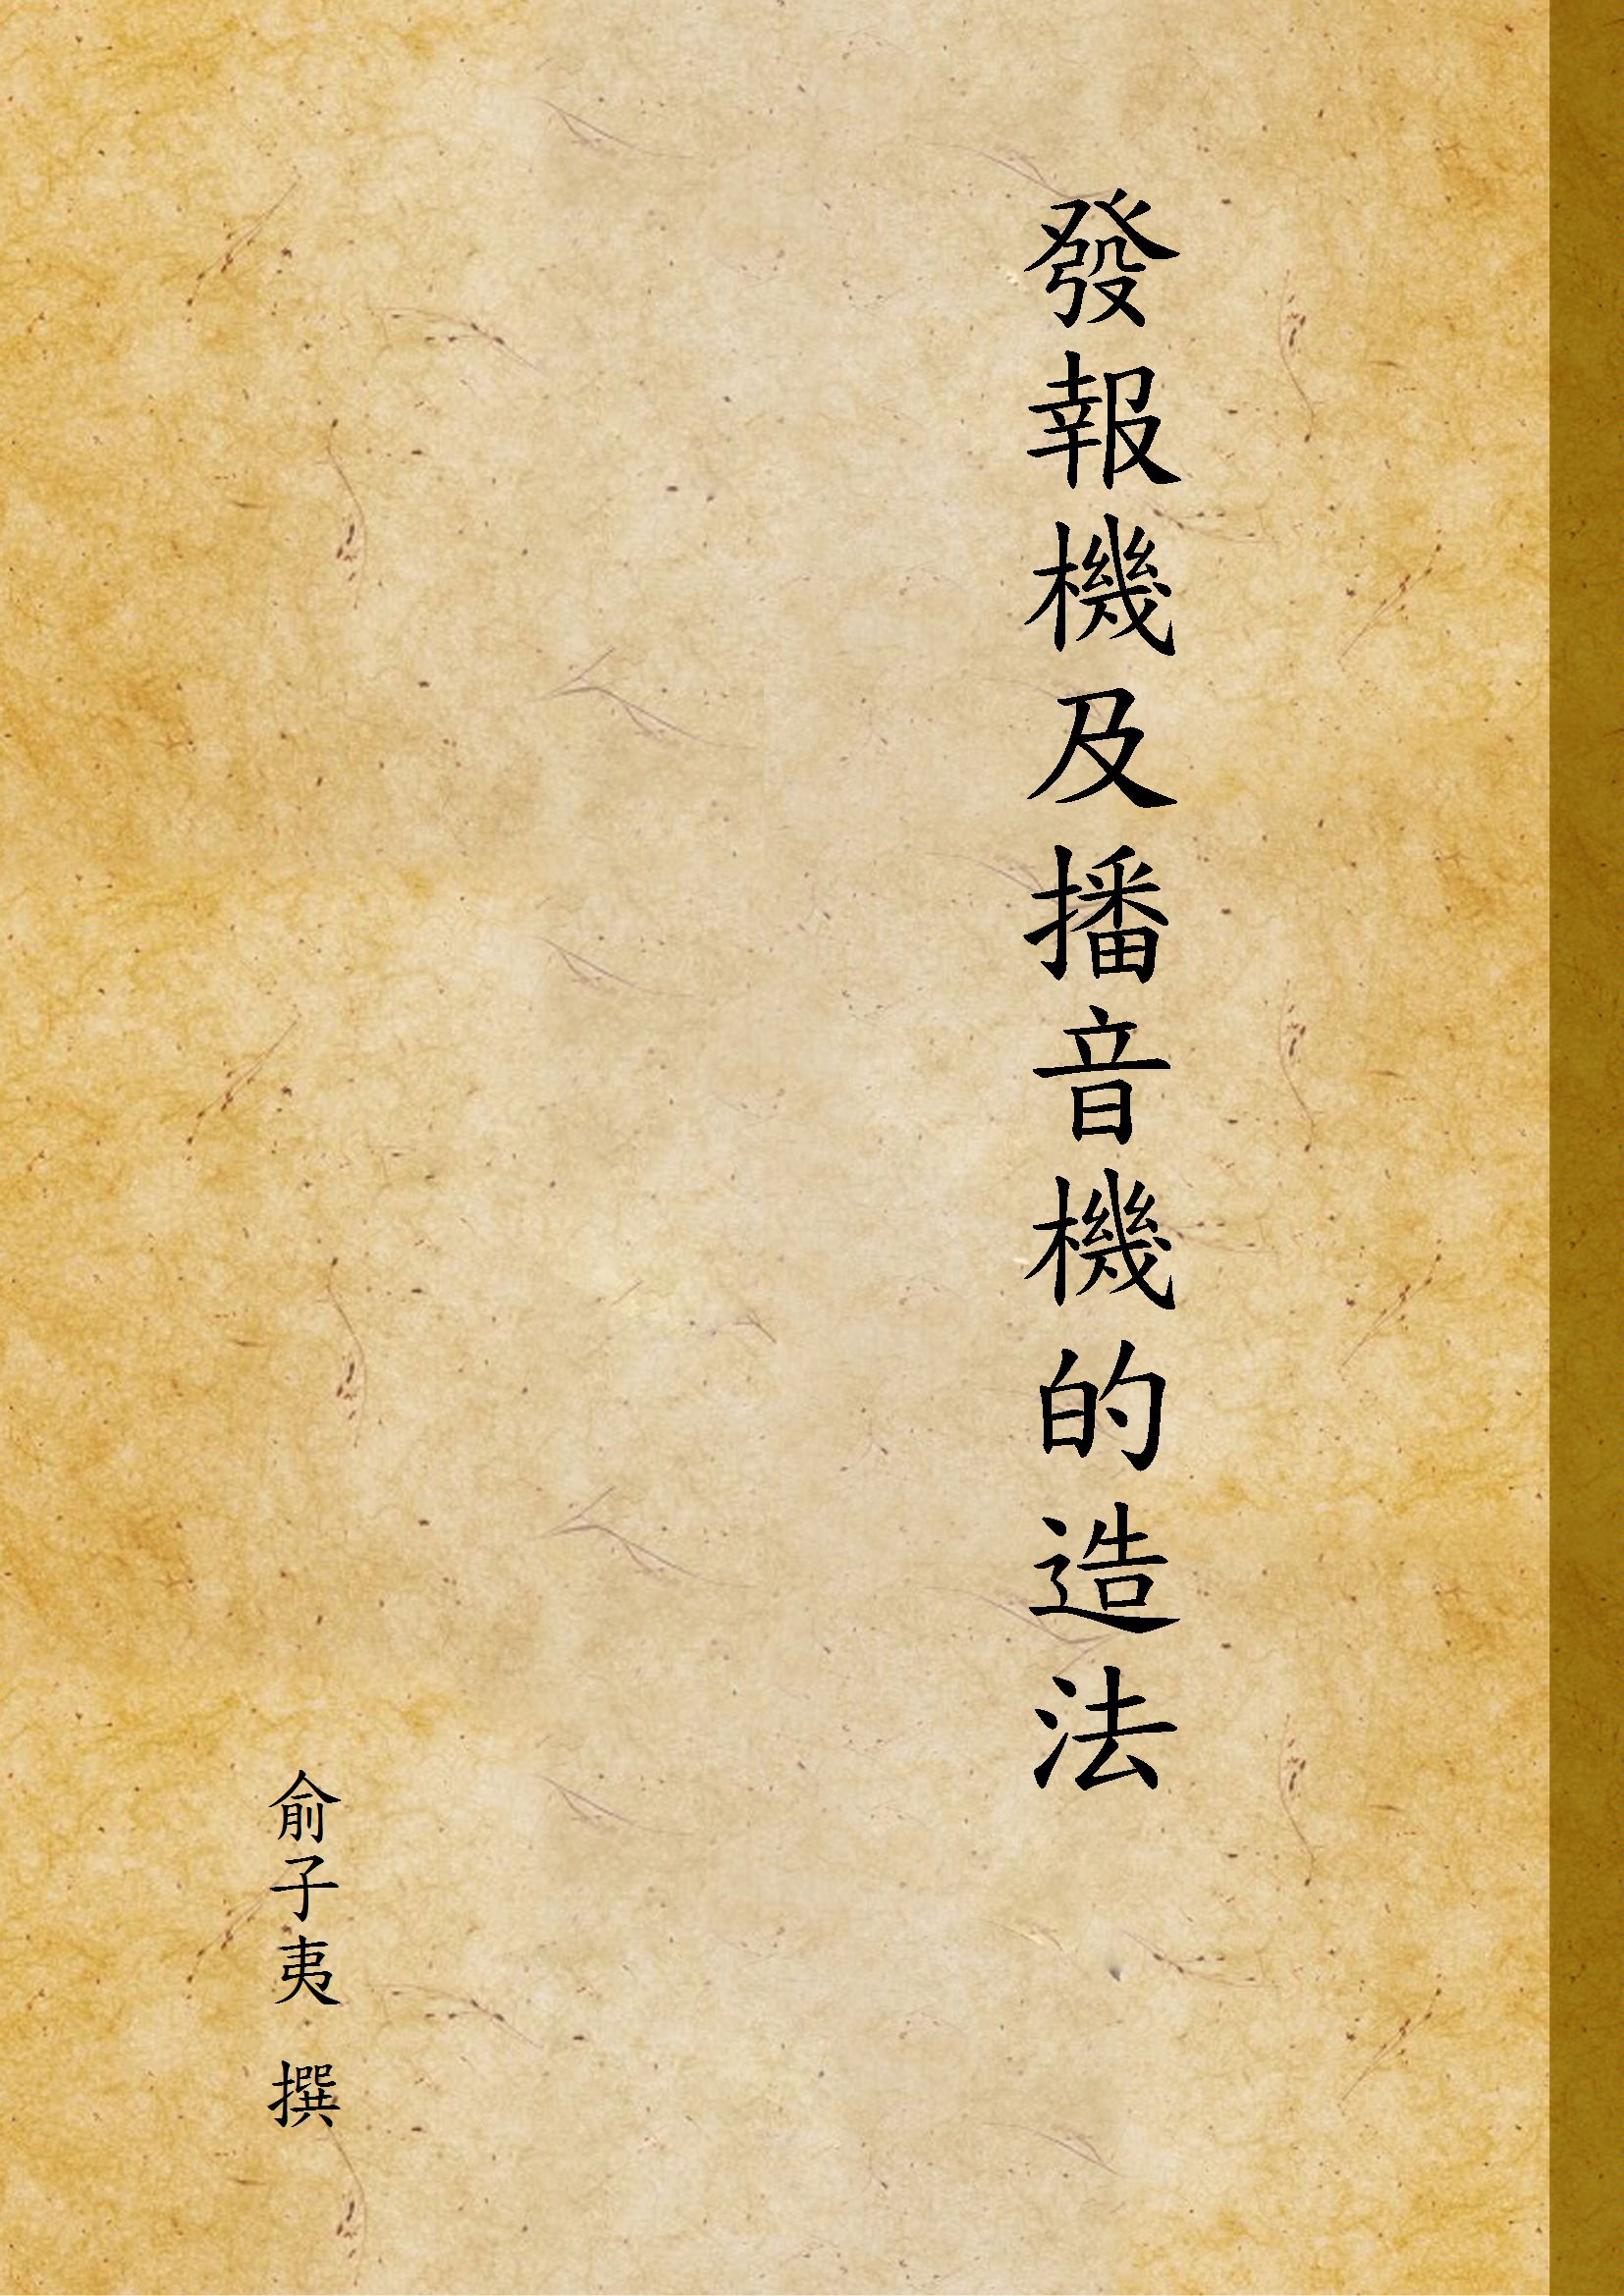 發報機及播音機的造法
俞子夷 撰